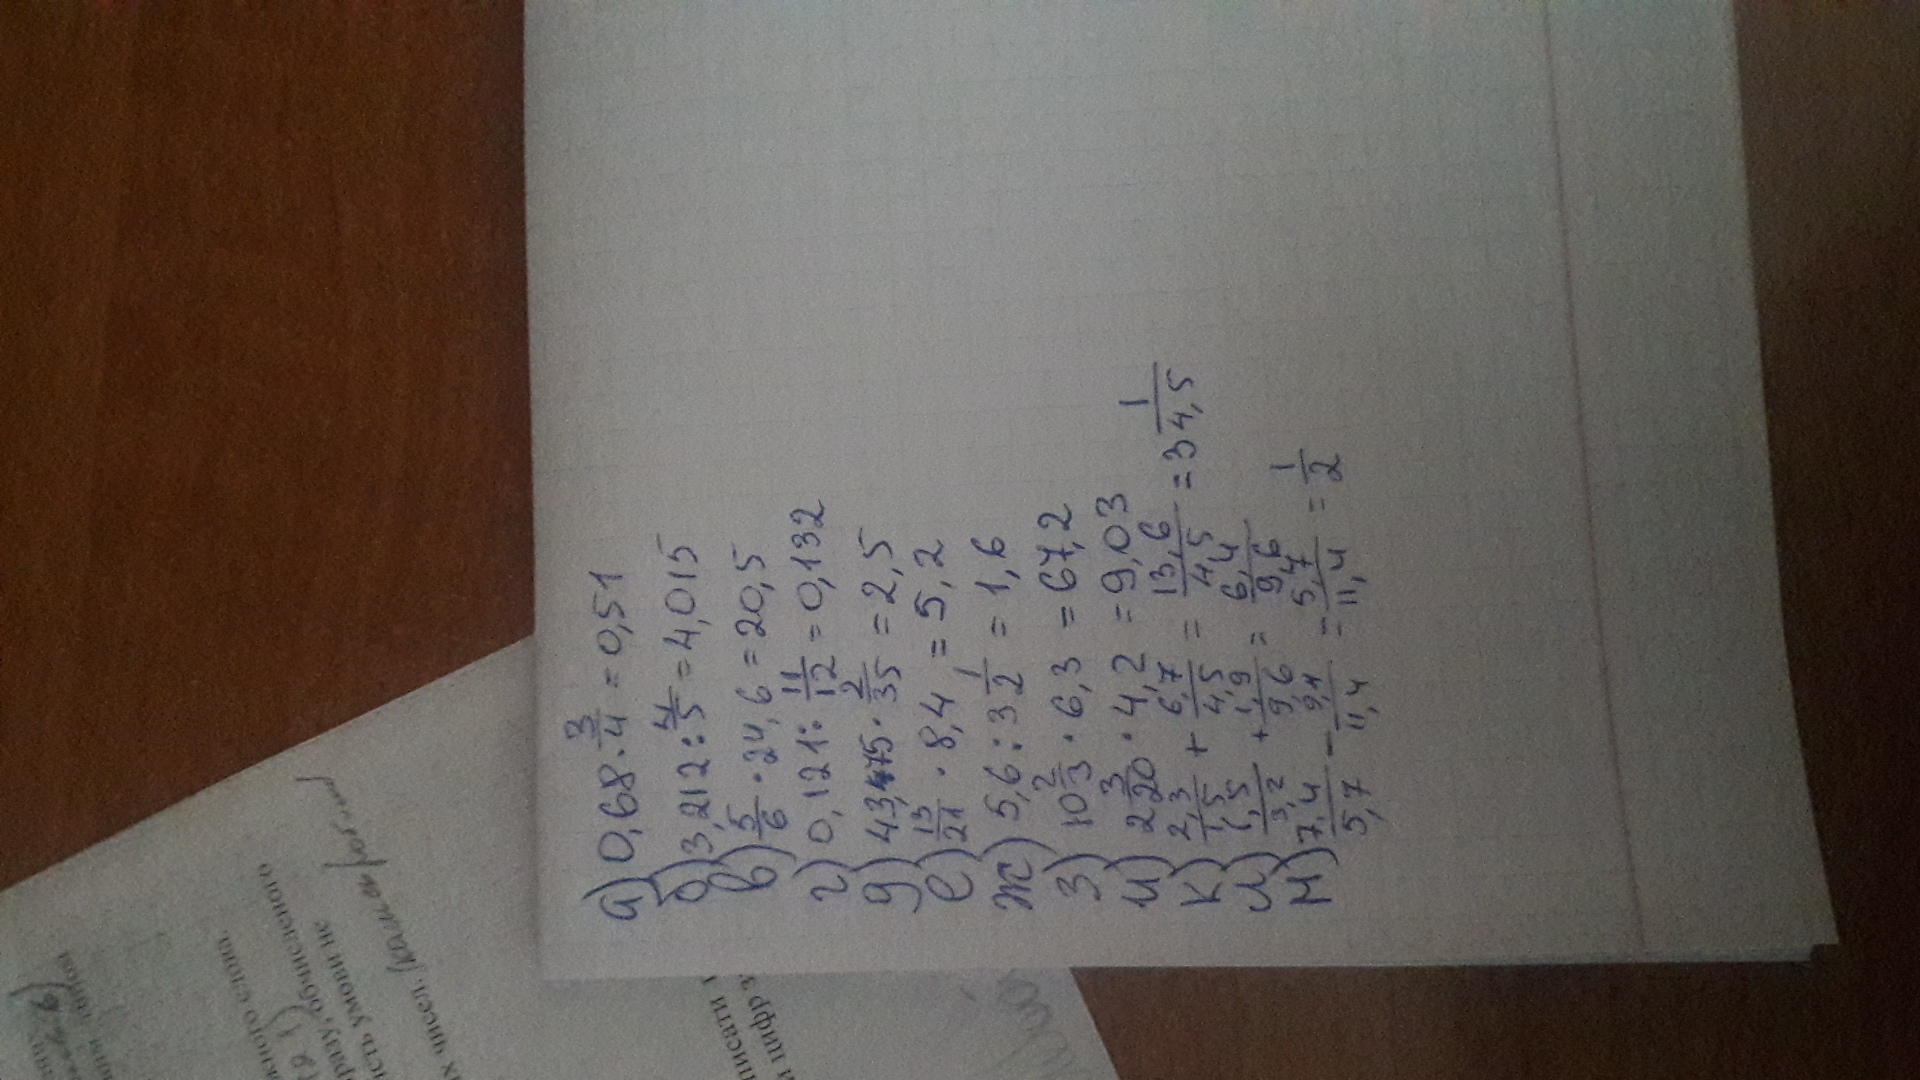 а) 0,68 · 3/4 = 0,51
б) 3,212 : 4/5 = 4,015
в) 5/6 · 24,6 = 20,5
г) 0,121 : 11/12 = 0,132
д) 43,75 · 2/35 = 2,5
е) 13/21 · 8,4 = 5,2
ж) 5,6 : 3 1/2 = 1,6
з) 10 2/3 · 6,3 = 67,2
и) 2 3/20 · 4,2 = 9,03
к) 2,3/1,5 + 6,7/4,5 = 13,6/4,5 = 3 1/4,5
л) 1,5/3,2 + 1,9/9,6 = 6,4/9,6
м) 7,4/5,7 - 9,1/11,4 = 5,7/11,4 = 1/2
жного слова.
разу, обчисленого
ість умови не
их чисел.
писати
и цифр з